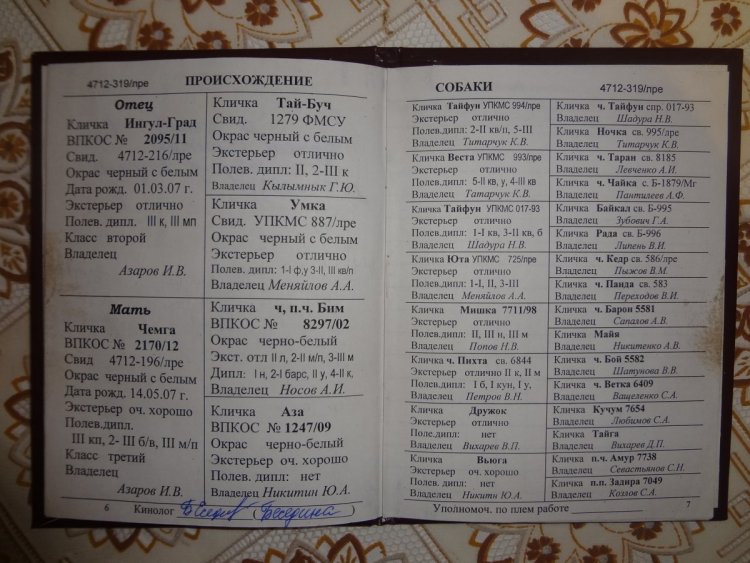 4712-319/пре ПРОИСХОЖДЕНИЕ
Отец
Кличка Ингул-Град
ВПКОС № 2095/11
Свид. 4712-216/лре
Окрас черный с белым
Дата рожд. 01.03.07 г.
Экстерьер отлично
Полев. дипл. III к, III мп
Класс второй
Владелец
Азаров И.В.
Мать
Кличка Чемга
ВПКОС № 2170/12
Свид 4712-196/лре
Окрас черный с белым
Дата рожд. 14.05.07 г.
Экстерьер оч. хорошо
Полев.дипл.
III кп, 2- III б/в, III м/п
Класс третий
Владелец
Азаров И.В.
Кличка Тай-Буч
Свид. 1279 ФМСУ
Окрас черный с белым
Экстерьер отлично
Полев. дипл: II, 2-III к
Владелец Кылымнык Г.Ю.
Кличка Умка
Свид. УПКМС 887/лре
Окрас черный с белым
Экстерьер отлично
Полев. дипл: 1-I ф,у 3-II, III кв/п
Владелец Меняйлов А.А.
Кличка ч, п.ч. Бим
ВПКОС № 8297/02
Окрас черно-белый
Экст. отл II л, 2-II м/л, 3-III м
Дипл: I н, 2-I барс, II у, 4-II к,
Владелец Носов А.И.
Кличка Аза
ВПКОС № 1247/09
Окрас черно-белый
Экстерьер оч. хорошо
Полев. дипл: нет
Владелец Никитин Ю.А.
6 Кинолог
СОБАКИ 4712-319/пре
Кличка Тайфун УПКМС 994/лре
Экстерьер отлично
Полев.дипл: 2-II кв/п, 5-III
Владелец Титарчук К.В.
Кличка Веста УПКМС 993/лре
Экстерьер отлично
Полев.дипл: 5-II кв, у, 4-III кв
Владелец Татарчук К.В.
Кличка Тайфун УПКМС 017-93
Экстерьер отлично
Полев.дипл: 1-I кв, 3-II кв, б
Владелец Шадура Н.В.
Кличка Юта УПКМС 725/лре
Экстерьер отлично
Полев.дипл: 1-I, II, 3-III
Владелец Меняйлов А.А.
Кличка Мишка 7711/98
Экстерьер отлично
Полев.дипл: II, III н, III м
Владелец Попов Н.В.
Кличка ч. Пихта св. 6844
Экстерьер отлично II к, II м
Полев.дипл: I б, I кун, I у,
Владелец Петров В.Н.
Кличка Дружок
Экстерьер отлично
Поле.дипл: нет
Владелец Вихарев В.П.
Кличка Вьюга
Экстерьер оч. хорошо
Полев.дипл: нет
Владелец Никитн Ю.А.
Кличка ч. Тайфун спр. 017-93
Владелец Шадура Н.В.
Кличка Ночка св. 995/лре
Владелец Титарчук К.В.
Кличка ч. Таран св. 8185
Владелец Левченко А.И.
Кличка ч. Чайка с. Б-1879/Мг
Владелец Пантилеев А.Ф.
Кличка Байкал св. Б-995
Владелец Зубович Г.А.
Кличка Рада св. Б-996
Владелец Липень В.И.
Кличка ч. Кедр св. 586/лре
Владелец Пыжов В.М.
Кличка ч. Панда св. 583
Владелец Переходов В.И.
Кличка ч. Барон 5581
Владелец Сапалов А.В.
Кличка Майя
Владелец Никитенко А.В.
Кличка ч. Бой 5582
Владелец Шатунова В.В.
Кличка ч. Ветка 6409
Владелец Ващеленко С.А.
Кличка Кучум 7654
Владелец Любимов С.А.
Кличка Тайга
Владелец Вихарев Д.П.
Кличка п.ч. Амур 7738
Владелец Севастьянов С.Н.
Кличка п.п. Задира 7049
Владелец Козлов С.А.
Уполномоч. по плем работе 7